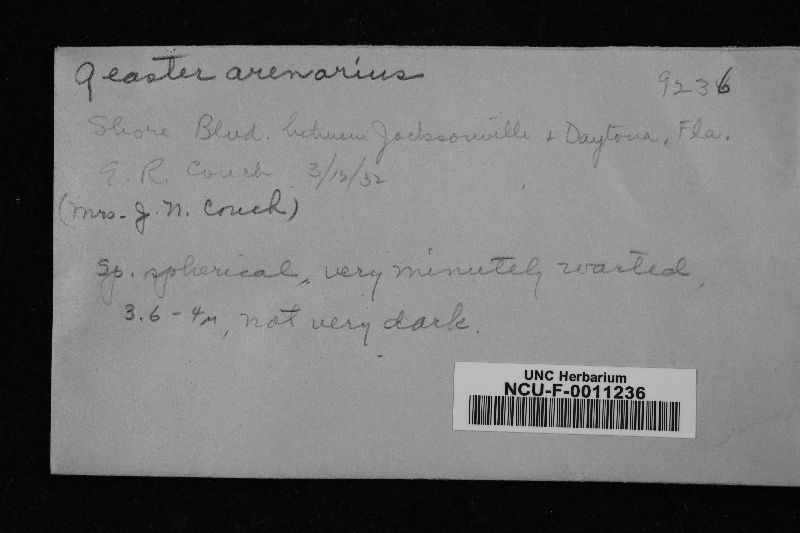 Geaster arenarius
9236
Shore Blvd. between Jacksonville & Daytona, Fla.
E. R. Couch 3/12/32
(Mrs. J. N. Couch)
Sp. spherical, very minutely warted,
3.6 - 4µ, not very dark.
UNC Herbarium
NCU-F-0011236